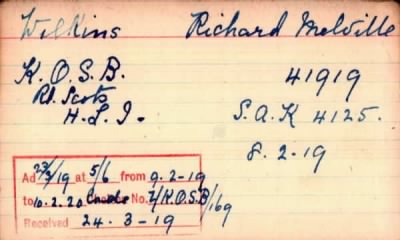 Wilkins Richard Melville
K.O.S.B. 41919
Rl. Scots
H.L.I. S.A.K 4125.
8.2-19
Ad 23/3/19 at 5/6 from 9-2-19
to 10.2.20 No. 7/K.O.S.B/169
Received 24-3-19